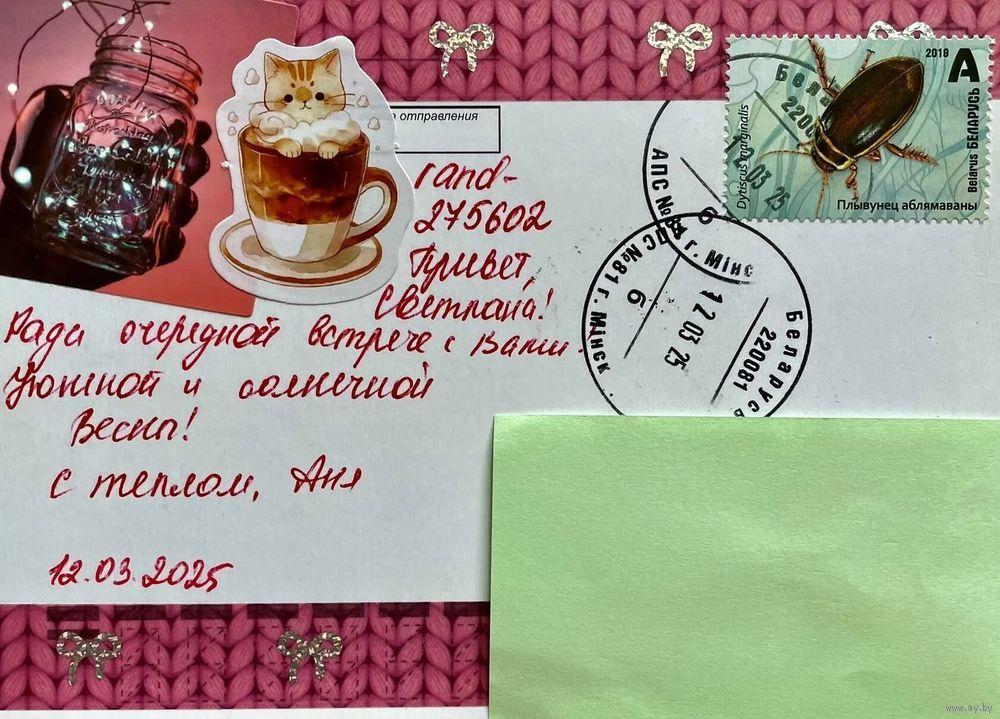 о отправления
rand-
275602
Привет,
Светлана!
Рада очередной встрече с Вами.
Уютной и солнечной
Весны!
С теплом, Аня
12.03.2025
2019 A
Dytiscus marginalis
Belarus БЕЛАРУСЬ
Плывунец аблямаваны
Бела
2200
03 25
АПС №81 г. Мінс
6
ПС №81 г. Мінск
6
12 03 25
220081
Беларусь
www.ay.by